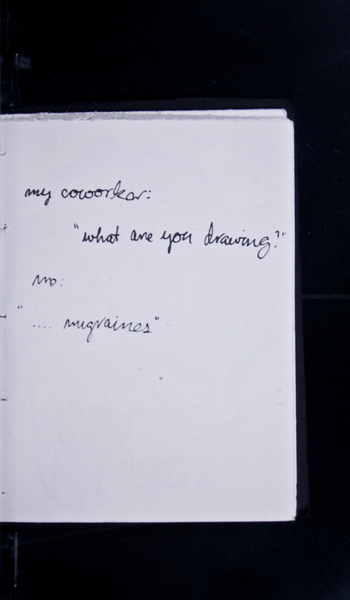 my coworker:
"what are you drawing?"
me:
".... migraines"